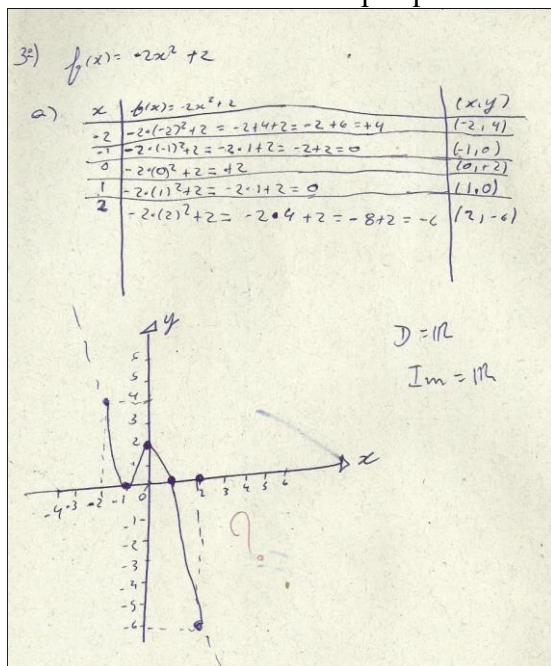 3ª) f(x) = -2x² + 2
a) x | f(x) = -2x² + 2 | (x, y)
-2 | -2•(-2)² + 2 = -2 + 4 + 2 = -2 + 6 = +4 | (-2, 4)
-1 | -2•(-1)² + 2 = -2 . 1 + 2 = -2 + 2 = 0 | (-1, 0)
0 | -2•(0)² + 2 = +2 | (0, +2)
1 | -2•(1)² + 2 = -2 . 1 + 2 = 0 | (1, 0)
2 | -2•(2)² + 2 = -2 • 4 + 2 = -8 + 2 = -6 | (2, -6)
y
D = IR
Im = IR
6
5
4
3
2
1
x
-4 -3 -2 -1 0 1 2 3 4 5 6
-1
-2
-3
-4
-5
-6
?